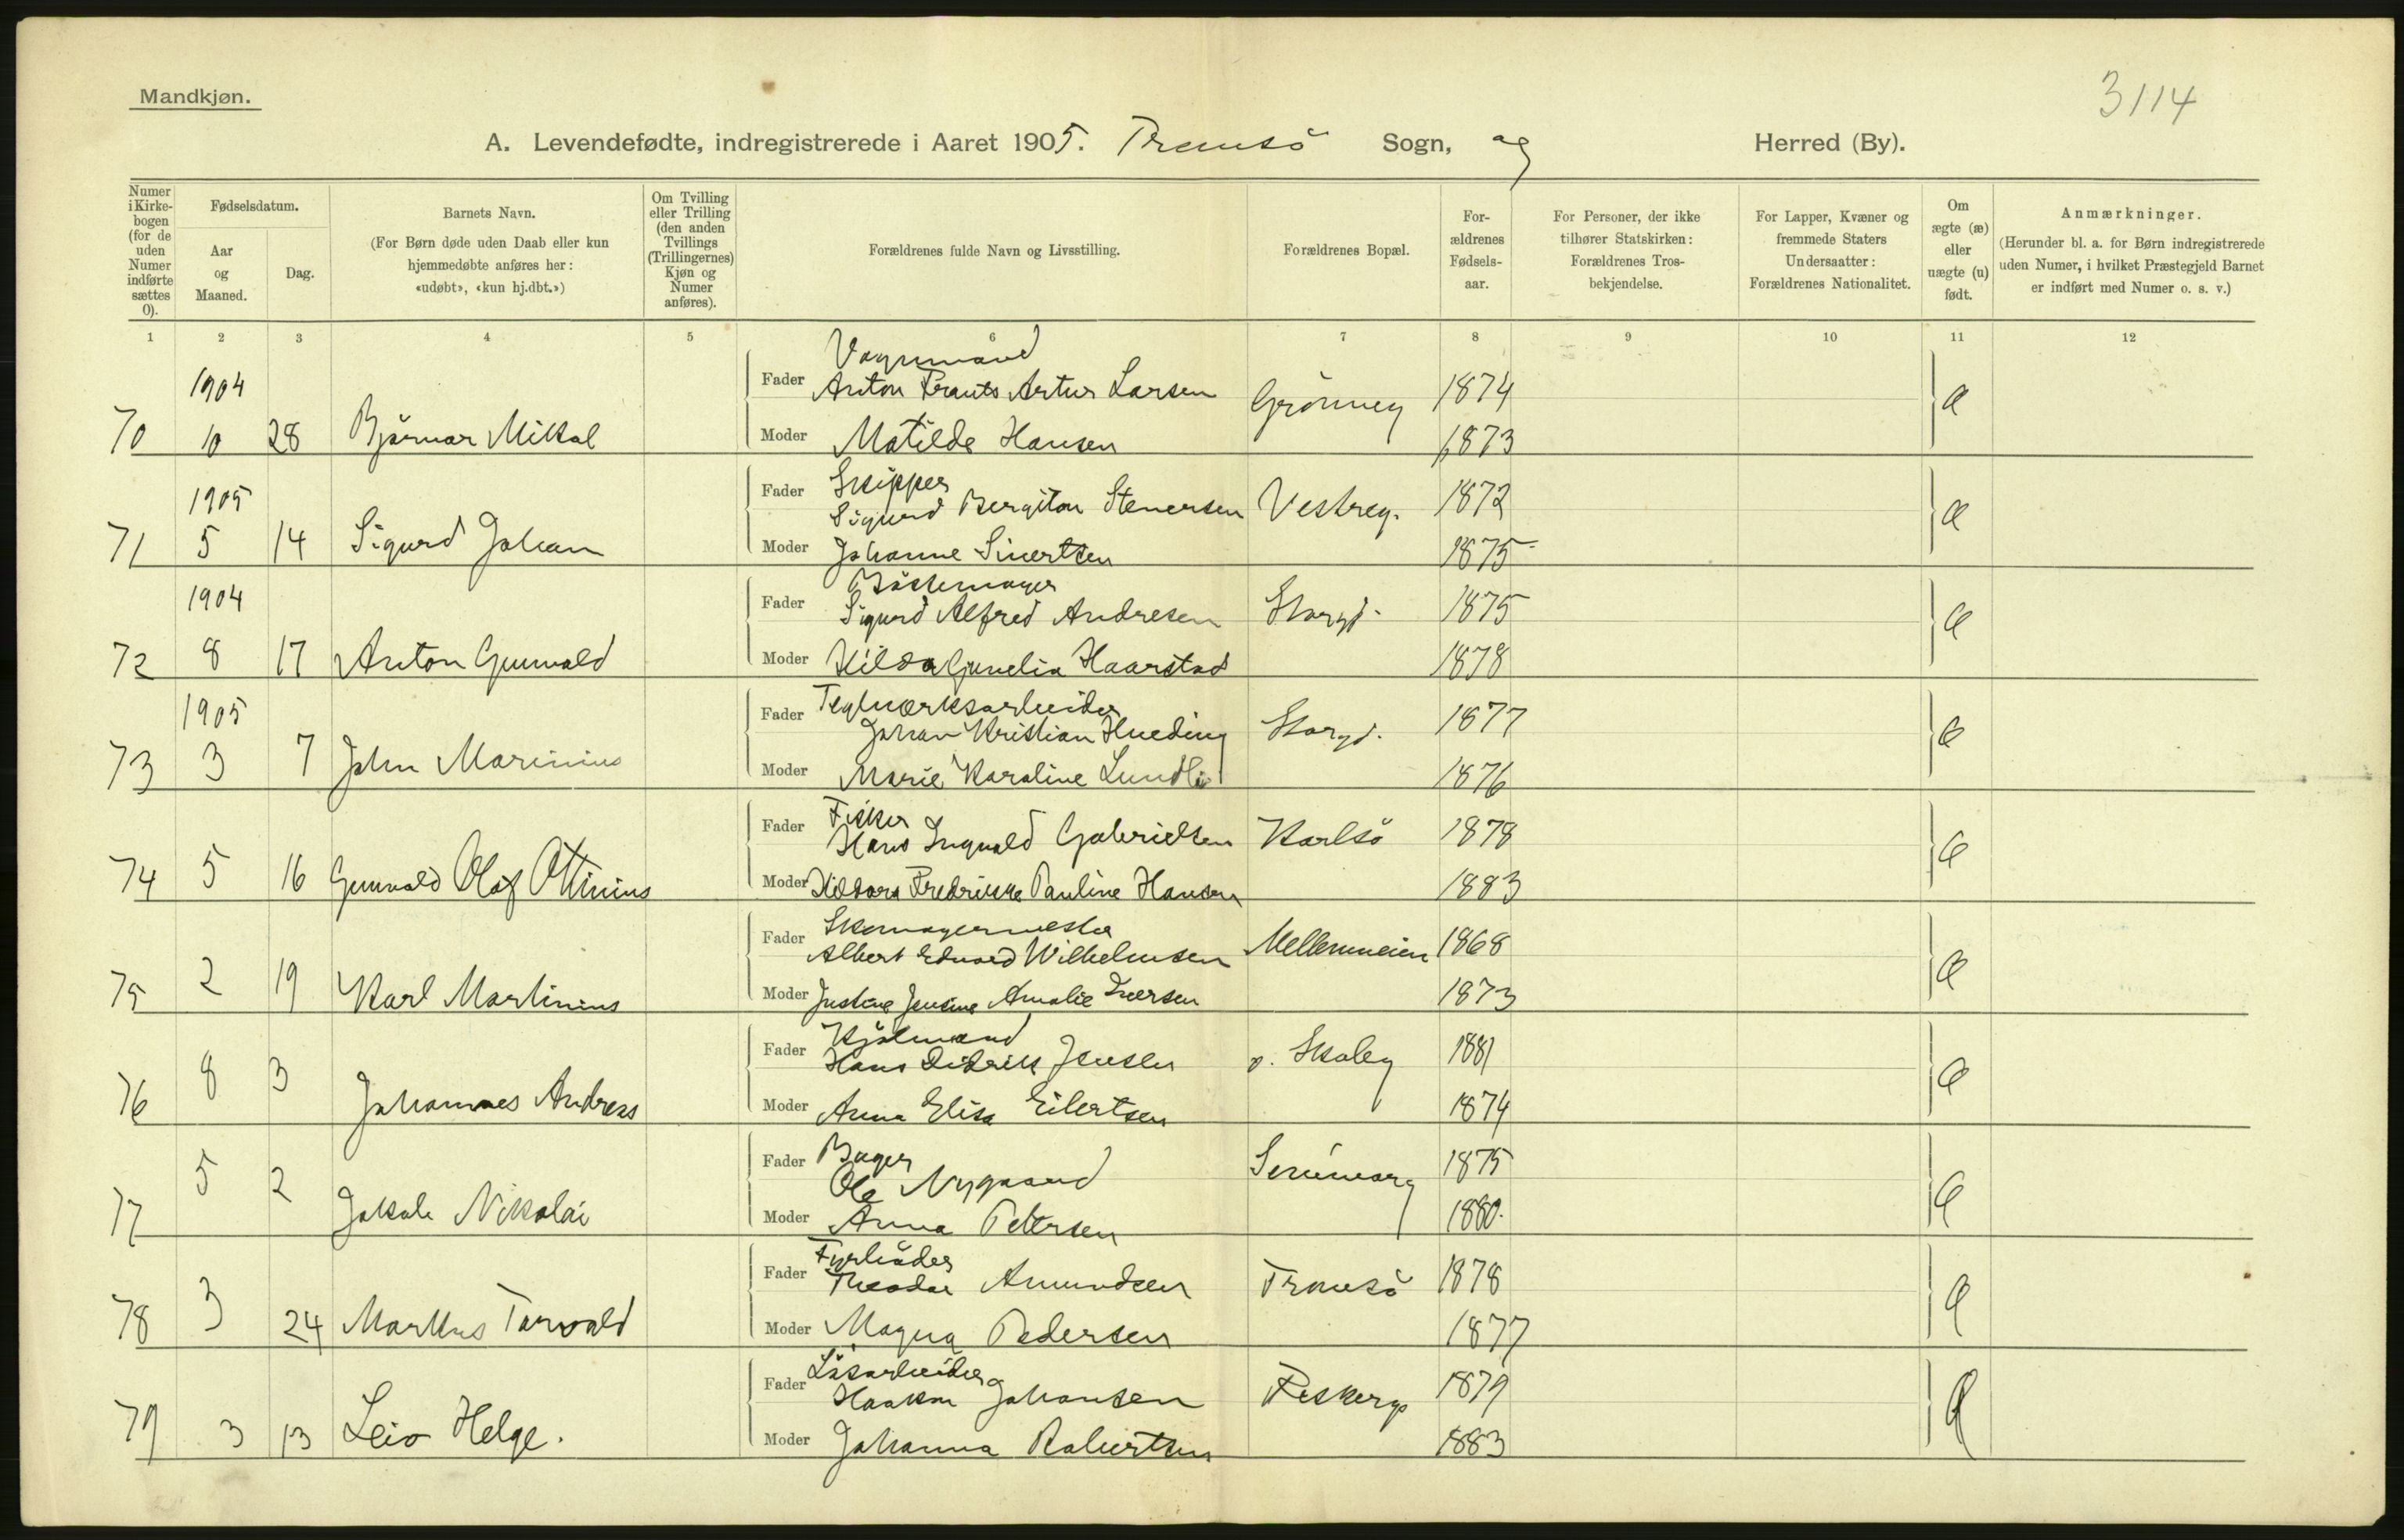 Mandkjøn.
3114
A. Levendefødte, indregistrerede i Aaret 1905. Tromsö Sogn, og Herred (By).
Numer i Kirkebogen (for de uden Numer indførte sættes 0).
Fødselsdatum.
Aar og Maaned.
Dag.
Barnets Navn.
(For Børn døde uden Daab eller kun hjemmedøbte anføres her: «udøbt», «kun hj.dbt.»)
Om Tvilling eller Trilling (den anden Tvillings (Trillingernes) Kjøn og Numer anføres).
Forældrenes fulde Navn og Livsstilling.
Forældrenes Bopæl.
Forældrenes Fødselsaar.
For Personer, der ikke tilhører Statskirken: Forældrenes Trosbekjendelse.
For Lapper, Kvæner og fremmede Staters Undersaatter: Forældrenes Nationalitet.
Om ægte (æ) eller uægte (u) født.
Anmærkninger.
(Herunder bl. a. for Børn indregistrerede uden Numer, i hvilket Præstegjeld Barnet er indført med Numer o. s. v.)
1 2 3 4 5 6 7 8 9 10 11 12
Vognmand
1904 Fader Anton Frants Artur Larsen Grönneg 1874 æ
70 10 28 Bjarnar Mikal Moder Matilde Hansen 1873
Skipper
1905 Fader Sigurd Bergiton Stenersen Vestreg. 1872 æ
71 5 14 Sigurd Johan Moder Johanne Sivertsen 1875
Bössemager
1904 Fader Sigurd Alfred Andresen Storgd. 1875 æ
72 8 17 Anton Gunvald Moder Hilda Haarstad 1878
Teglværksarbeider
1905 Fader Johan Kristian Hveding Storgd. 1877 æ
73 3 7 John Marinius Moder Marie Karoline Lundli 1876
Fisker
Fader Hans Ingvald Gabrielsen Karlsö 1878 æ
74 5 16 Gunvald Olaf Ottinius Moder Fredrikke Pauline Hansen 1883
Skomagermester
Fader Albert Edvard Wilhelmsen Mellemveien 1868 æ
75 2 19 Karl Martinius Moder Justine Jensine Amalie Iversen 1873
Kjölmand
Fader Hans Didrik Jensen v. Skoleg 1881 æ
76 8 3 Johannes Andreas Moder Anna Elisa Eilertsen 1874
Bager
Fader Ole Nygaard 1875 æ
77 5 2 Jakob Nikolai Moder Anna Pettersen 1880.
Fyrböder
Fader Theodor Amundsen Tromsö 1878 æ
78 3 24 Markus Torvald Moder Magna Pedersen 1877
Lösarbeider
Fader Haakon Johansen Fiskerg 1879 æ
79 3 13 Leiv Helge. Moder Johanna Robertsen 1883